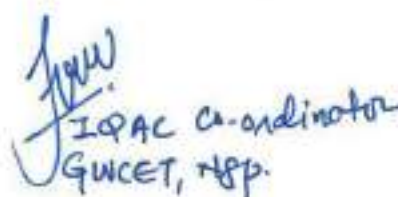 IQAC Co-ordinator
GWCET, Ngp.